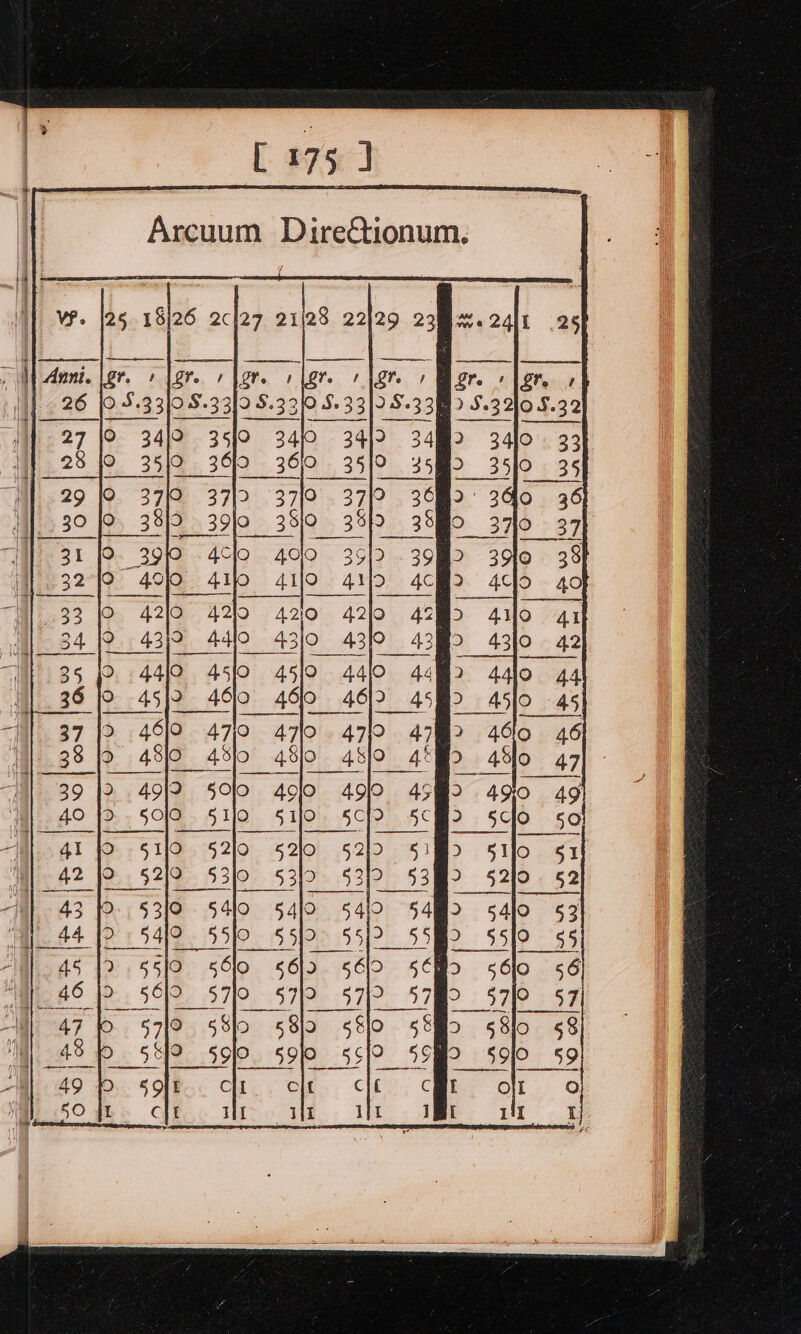 [ 175 ]
Arcuum Directionum.
♑. 25 18 26 20 27 21 28 22 29 23 ♒. 24 1 25
Anni. gr. ′ gr. ′ gr. ′ gr. ′ gr. ′ gr. ′ gr. ′
26 0 S.33 0 S.33 0 S.33 0 S.33 0 S.33 0 S.32 0 S.32
27 0 34 0 35 0 34 0 34 0 34 0 34 0 33
28 0 35 0 36 0 36 0 35 0 35 0 35 0 35
29 0 37 0 37 0 37 0 37 0 36 0 36 0 36
30 0 38 0 39 0 38 0 38 0 38 0 37 0 37
31 0 39 0 40 0 40 0 39 0 39 0 39 0 38
32 0 40 0 41 0 41 0 41 0 40 0 40 0 40
33 0 42 0 42 0 42 0 42 0 42 0 41 0 41
34 0 43 0 44 0 43 0 43 0 43 0 43 0 42
35 0 44 0 45 0 45 0 44 0 44 0 44 0 44
36 0 45 0 46 0 46 0 46 0 45 0 45 0 45
37 0 46 0 47 0 47 0 47 0 47 0 46 0 46
38 0 48 0 48 0 48 0 48 0 48 0 48 0 47
39 0 49 0 50 0 49 0 49 0 49 0 49 0 49
40 0 50 0 51 0 51 0 50 0 50 0 50 0 50
41 0 51 0 52 0 52 0 52 0 51 0 51 0 51
42 0 52 0 53 0 53 0 53 0 53 0 52 0 52
43 0 53 0 54 0 54 0 54 0 54 0 54 0 53
44 0 54 0 55 0 55 0 55 0 55 0 55 0 55
45 0 55 0 56 0 56 0 56 0 56 0 56 0 56
46 0 56 0 57 0 57 0 57 0 57 0 57 0 57
47 0 57 0 58 0 58 0 58 0 58 0 58 0 58
48 0 58 0 59 0 59 0 59 0 59 0 59 0 59
49 0 59 1 0 1 0 1 0 1 0 1 0 1 0
50 1 0 1 1 1 1 1 1 1 1 1 1 1 1